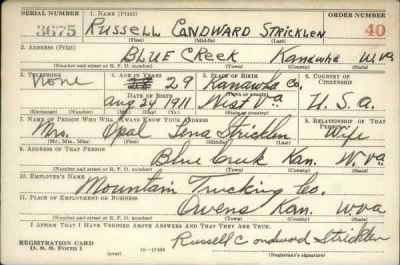 SERIAL NUMBER 1. NAME (Print) ORDER NUMBER
3675 RUSSELL CONDWARD STRICKLEN 40
(First) (Middle) (Last)
2. ADDRESS (Print)
BLUE CREEK Kanawha W.Va.
(Number and street or R. F. D. number) (Town) (County) (State)
3. TELEPHONE 4. AGE IN YEARS 5. PLACE OF BIRTH 6. COUNTRY OF CITIZENSHIP
None 29 Kanawha Co.
DATE OF BIRTH (Town or county)
Aug 24 1911 West Va U.S.a.
(Exchange) (Number) (Mo.) (Day) (Yr.) (State or country)
7. NAME OF PERSON WHO WILL ALWAYS KNOW YOUR ADDRESS 8. RELATIONSHIP OF THAT PERSON
Mrs. Opal Lena Stricklen Wife
(Mr., Mrs., Miss) (First) (Middle) (Last)
9. ADDRESS OF THAT PERSON
Blue Creek Kan. W.Va.
(Number and street or R. F. D. number) (Town) (County) (State)
10. EMPLOYER'S NAME
Mountain Trucking Co.
11. PLACE OF EMPLOYMENT OR BUSINESS
Owens Kan. W Va
(Number and street or R. F. D. number) (Town) (County) (State)
I AFFIRM THAT I HAVE VERIFIED ABOVE ANSWERS AND THAT THEY ARE TRUE.
REGISTRATION CARD Russell Condward Stricklen
D. S. S. Form 1 (over) 16—17105 (Registrant's signature)